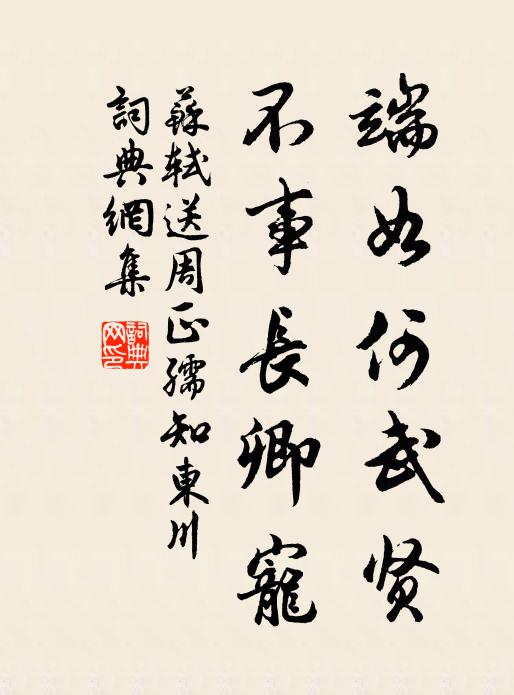 端如何武贤
不事長卿寵
蘇軾送周正孺知東川
詞典網集
詞典网印